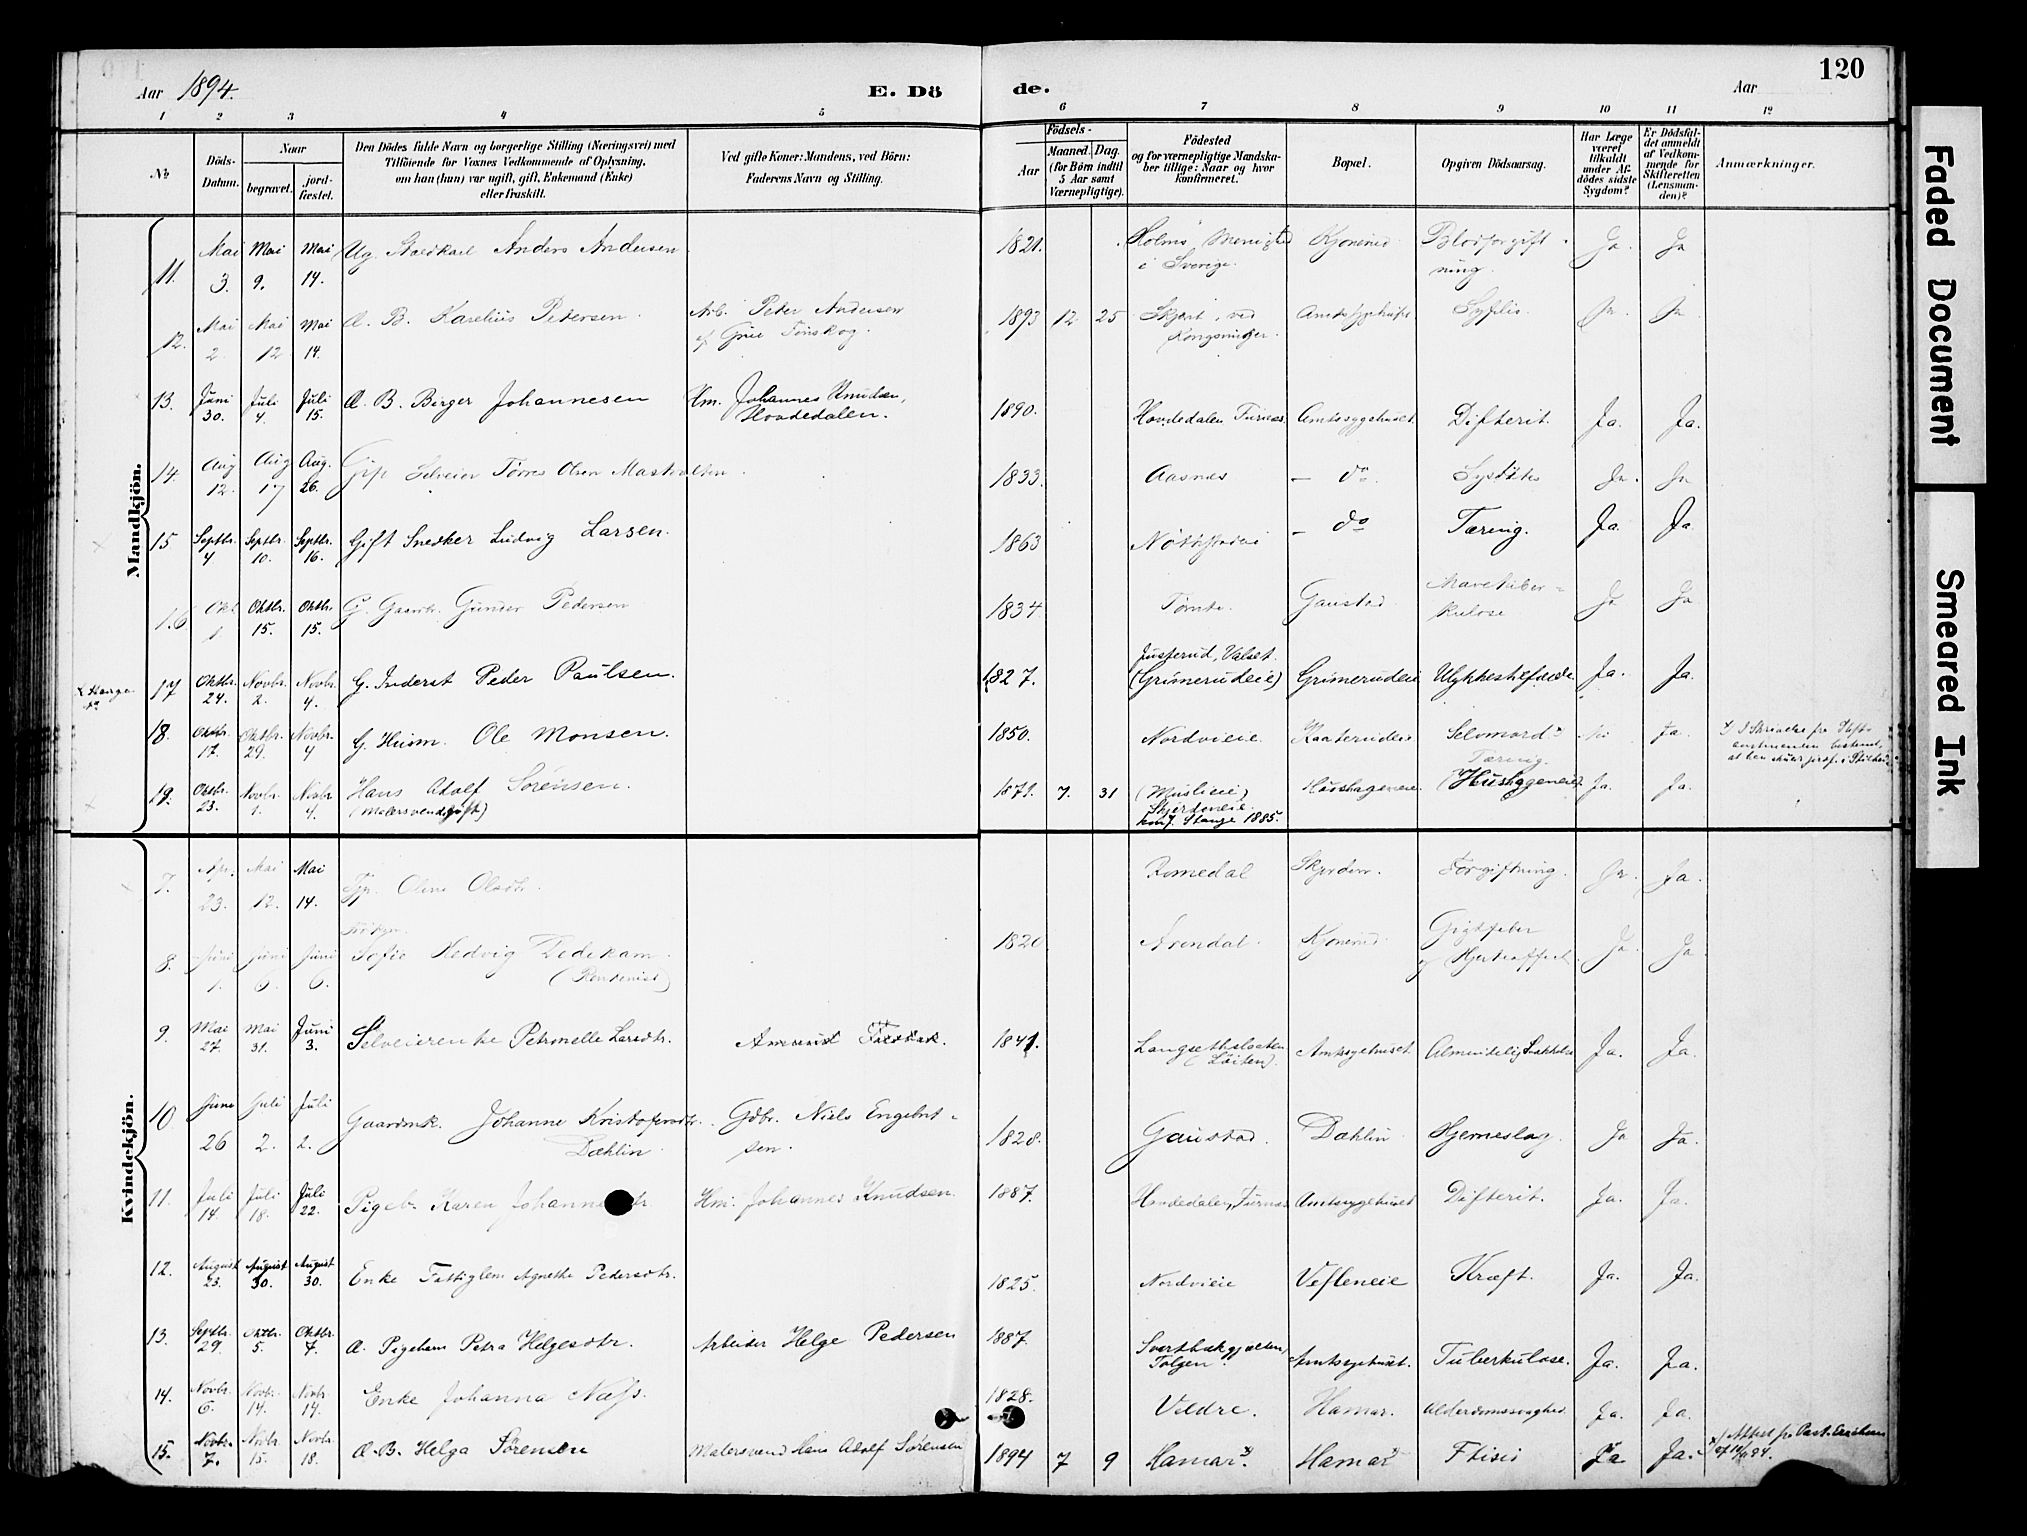 Aar 1894. E. Döde. Aar 120
1 2 3 4 5 6 7 8 9 10 11 12
No
Döds-Datum.
Naar
begravet.
jordfæstet.
Den Dödes fulde Navn og borgerlige Stilling (Næringsvei) med
Tilföiende for Voxnes Vedkommende af Oplysning,
om han (hun) var ugift, gift, Enkemand (Enke)
eller fraskilt.
Ved gifte Koner: Mandens, ved Börn:
Faderens Navn og Stilling.
Födsels-
Aar Maaned. Dag.
(for Börn indtil
5 Aar samt
Værnepligtige).
Födested
og for værnepligtige Mandskaber
tillige: Naar og hvor
konfirmeret.
Bopæl.
Opgiven Dödsaarsag.
Har Læge
været
tilkaldt
under Afdödes
sidste
Sygdom?
Er Dödsfaldet
anmeldt
af Vedkommende
for
Skifteretten
(Lensmanden)?
Anmærkninger.
Mandkjön.
11. Mai 3. Mai 9. Mai 14. Ug. Anders Andersen 1821. i Sverige. Blodforgiftning. Ja. Ja
12. Mai 2. Mai 12 Mai 14. Æ. B. Karelius Petersen. Arb. Peter Andersen af Grue 1893 12 25 ved Kongsvinger. Amtssygehuset Syfilis. Ja. Ja.
13. Juni 30. Juli 4. Juli 15. Æ. B. Birger Johannesen Hm. Johannes Knudsen, Hovdedalen. 1890. Hovdedalen Furnæs. Amtssygehuset. Difterit. Ja. Ja.
14. Aug 12. Aug 17 Aug. 26. Selveier Tørres Olsen 1833. Aasnes – do. Ja. Ja
15 Septbr. 4 Septbr. 10. Septbr. 16. Gift Snedker Ludvig Larsen. 1863 – do Tæring. Ja. Ja.
16 Okt 1 Oktbr. 15. Oktbr. 15. G. Gaardbr. Gunder Pedersen 1834 Tomte. Gaustad. Mavetuberkulose Ja Ja
x Stange
17 Oktbr. 24. Novbr. 2. Novbr. 4. G. Inderst Peder Paulsen. 1827. Justerud, Valset. (Grimerudeie) Grimerudeie Ulykkestilfælde. Ja. Ja.
18. Oktbr. 17. Oktbr. 29. Novbr. 4 G. Husm. Ole Monsen. 1850. Nordvieie. Kaaterudeie Selvmord x Nei Ja.
19. Oktbr. 23. Novbr. 1. Novbr. 4. Hans Adolf Sørensen. (Malersvend, gift) 1871. 7. 31 (Muslieie) Skjerdeneie. konf. Stange 1885. Tæring. Ja. Ja.
Kvindekjön.
7. Apr. 23. Mai 12. Mai 14. Oline Olsdtr. Romedal Forgiftning. Ja. Ja.
8. Juni 1. Juni 6. Juni 6. Sofie Hedvig Dedekam. (Rentenist) 1820 Arendal. Gigtfeber og Ja. Ja.
9. Mai 27. Mai 31. Juni 3. Selveierenke Petronelle Larsdtr. Amund 1841. (Løiten). Amtssygehuset. Almindelig Ja. Ja.
10 Juni 26 Juli 2. Juli 2. Gaardmk. Johanne Kristofersdtr. Dæhlin. Gdbr. Niels Engebretsen. 1828. Gaustad. Dæhlin Hjerneslag. Ja Ja.
11. Juli 14. Juli 18. Juli 22. Pigeb. Karen Johannesdtr. Hm. Johannes Knudsen. 1887. Hovdedalen, Furnæs Amtssygehuset Difterit. Ja. Ja.
12. August 23. August 30. August 30. Enke Fattiglem Agnethe Pedersdtr. 1825 Nordvieie Vefleneie Kræft. Ja. Ja.
13. Septbr. 29. Oktbr. 5. Oktbr. 7. Æ. Pigebarn Petra Helgesdtr. Arbeider Helge Pedersen 1887. Tolgen. Amtssygehuset. Tuberkulose. Ja. Ja.
14. Novbr. 6. Novbr. 14. Novbr. 14. Enke Johanna Næss. 1828. Veldre. Hamar. Alderdomssvaghed Ja. Ja.
15. Novbr. 7. Novbr. 15. Novbr. 18. Æ. B. Helga Sørensen Malersvend Hans Adolf Sørensen 1894 7 9 Hamar. x) Hamar x) Ftisis Ja Ja. x) Attest fra Past.
Faded Document
Smeared Ink